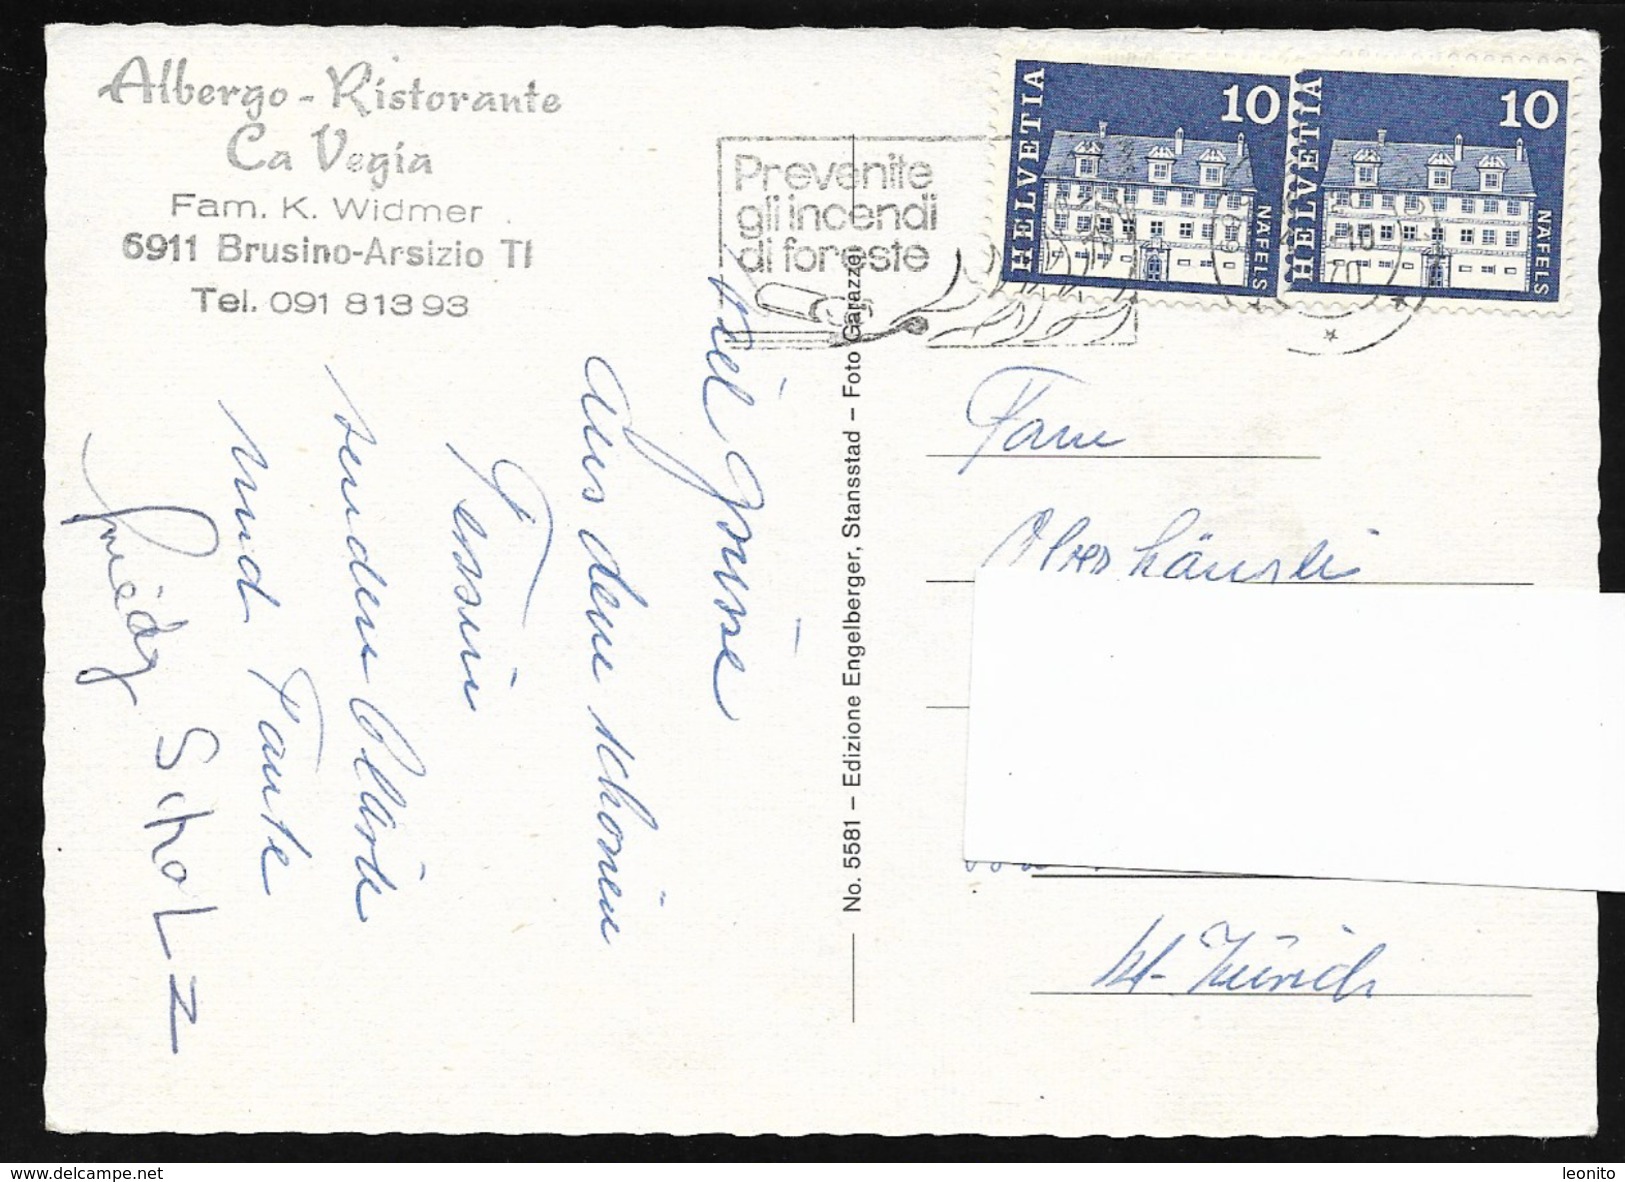 Albergo - Ristorante
Ca Vegia
Fam. K. Widmer
6911 Brusino-Arsizio TI
Tel. 091 8 13 93
Prevenite
gli incendi
di foreste
HELVETIA
10
NÄFELS
HELVETIA
10
NÄFELS
10
70
Viel Grüsse
aus dem schönen
Tessin
senden
und Tante
Friedy
SchoLz
No. 5581 – Edizione Engelberger, Stansstad – Foto Garazzei
Fam
Oberhänsli
Kt. Zürich
www.delcampe.net
leonito